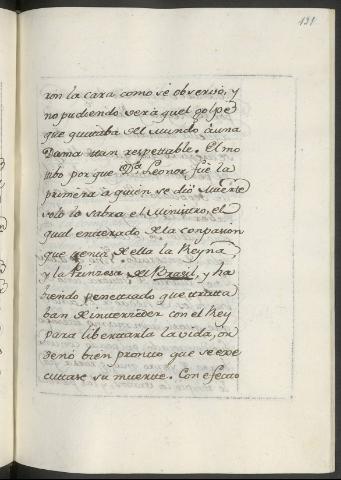 121
ron la cara como sè observò, y
no pudiendo ver aquel golpe
que quitaba del Mundo à una
Dama tan respetable. El mo
tibo por que D.ª Leonor fuè la
primera a quien se diò Muerte
solo lo sabrà el Ministro, el
qual enterado de la conpasion
que tenia de ella la Reyna,
y la Princesa del Brasil, y ha
biendo penetrado que trata
ban de interceder con el Rey
para libertarla la vida, or
denò bien pronto que se exe
cutase su muerte. Con efecto